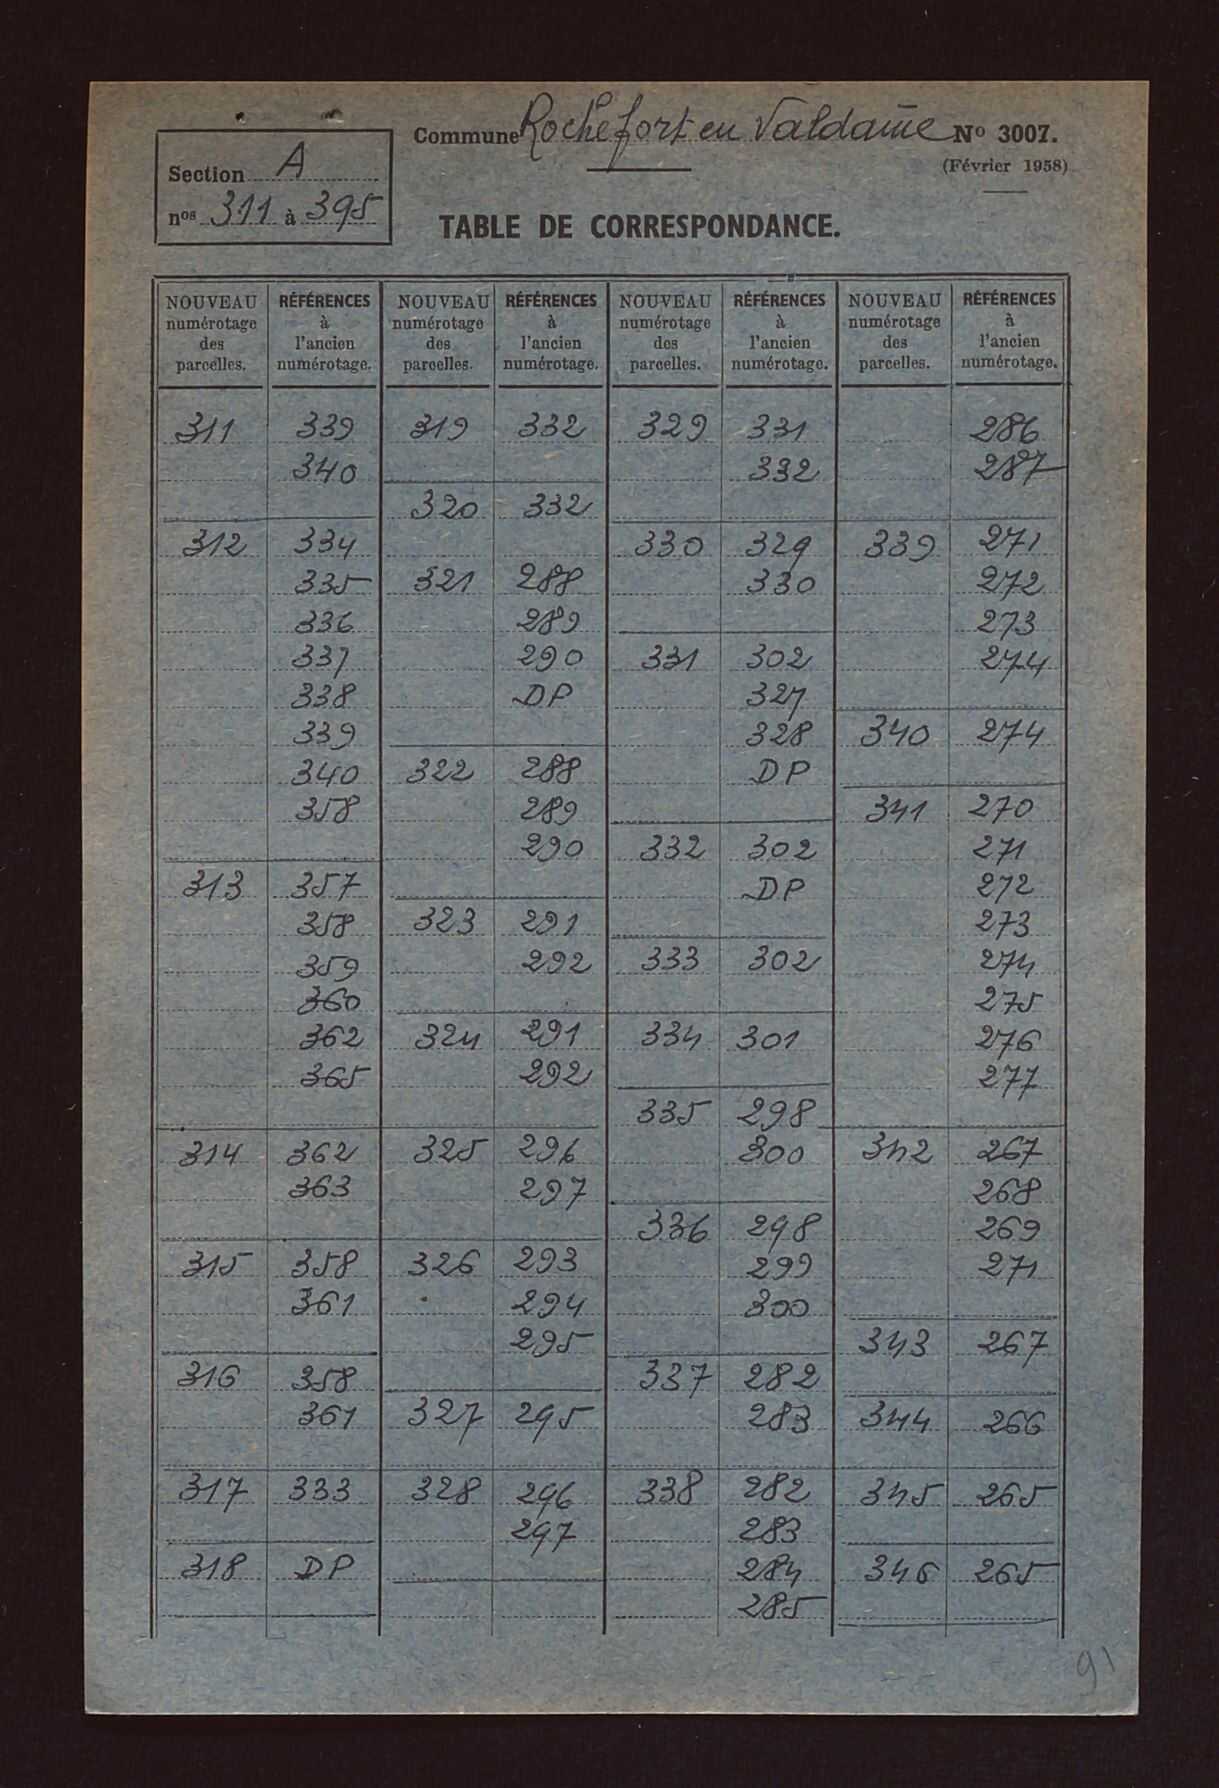 Commune Rochefort en Valdaine Nº 3007.
(Février 1958)
Section A
nos 311 à 395
TABLE DE CORRESPONDANCE.
NOUVEAU numérotage des parcelles. RÉFÉRENCES à l'ancien numérotage. NOUVEAU numérotage des parcelles. RÉFÉRENCES à l'ancien numérotage. NOUVEAU numérotage des parcelles. RÉFÉRENCES à l'ancien numérotage. NOUVEAU numérotage des parcelles. RÉFÉRENCES à l'ancien numérotage.
311 339
340
312 334
335
336
337
338
339
340
358
313 357
358
359
360
362
365
314 362
363
315 358
361
316 358
361
317 333
318 DP
319 332
320 332
321 288
289
290
DP
322 288
289
290
323 291
292
324 291
292
325 296
297
326 293
294
295
327 295
328 296
297
329 331
332
330 329
330
331 302
327
328
DP
332 302
DP
333 302
334 301
335 298
300
336 298
299
300
337 282
283
338 282
283
284
285
286
287
339 271
272
273
274
340 274
341 270
271
272
273
274
275
276
277
342 267
268
269
271
343 267
344 266
345 265
346 265
91